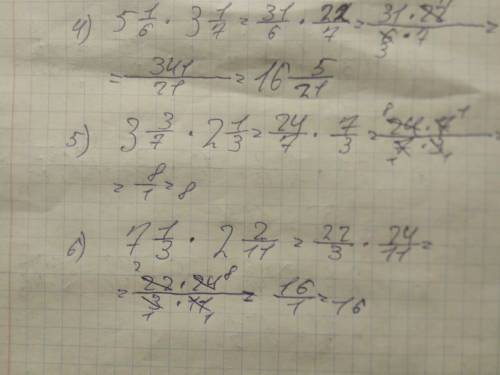 4) 5 1/6 · 3 1/7 = 31/6 · 22/7 = 31·22/6·7 =
3
= 341/21 = 16 5/21
5) 3 3/7 · 2 1/3 = 24/7 · 7/3 = 8 24·7 1/1 7·3 1 =
= 8/1 = 8
6) 7 1/3 · 2 2/11 = 22/3 · 24/11 =
= 2 22·24 8/3·11 = 16/1 = 16
1 1